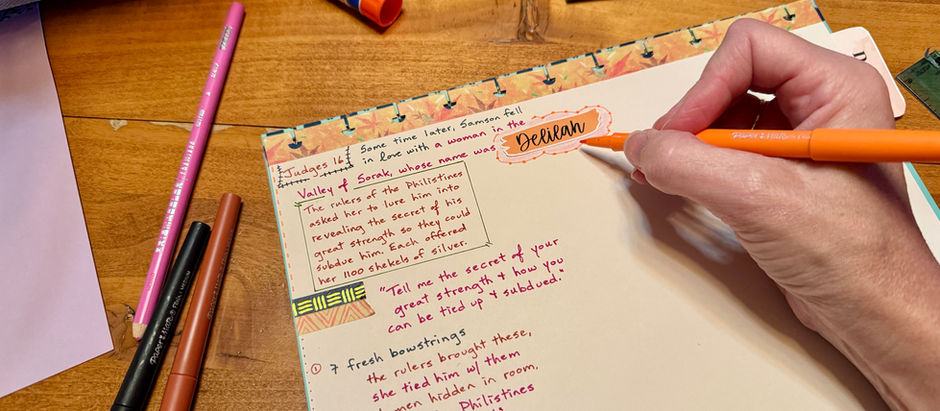 Judges 16
Some time later, Samson fell
in love with a woman in the
Valley of Sorak, whose name was
Delilah
The rulers of the Philistines
asked her to lure him into
revealing the secret of his
great strength so they could
subdue him. Each offered
her 1100 shekels of silver.
"Tell me the secret of your
great strength & how you
can be tied up & subdued."
① 7 fresh bowstrings
the rulers brought these,
she tied him w/ them
men hidden in room.
Philistines
PAPER MATE
PAPER MATE